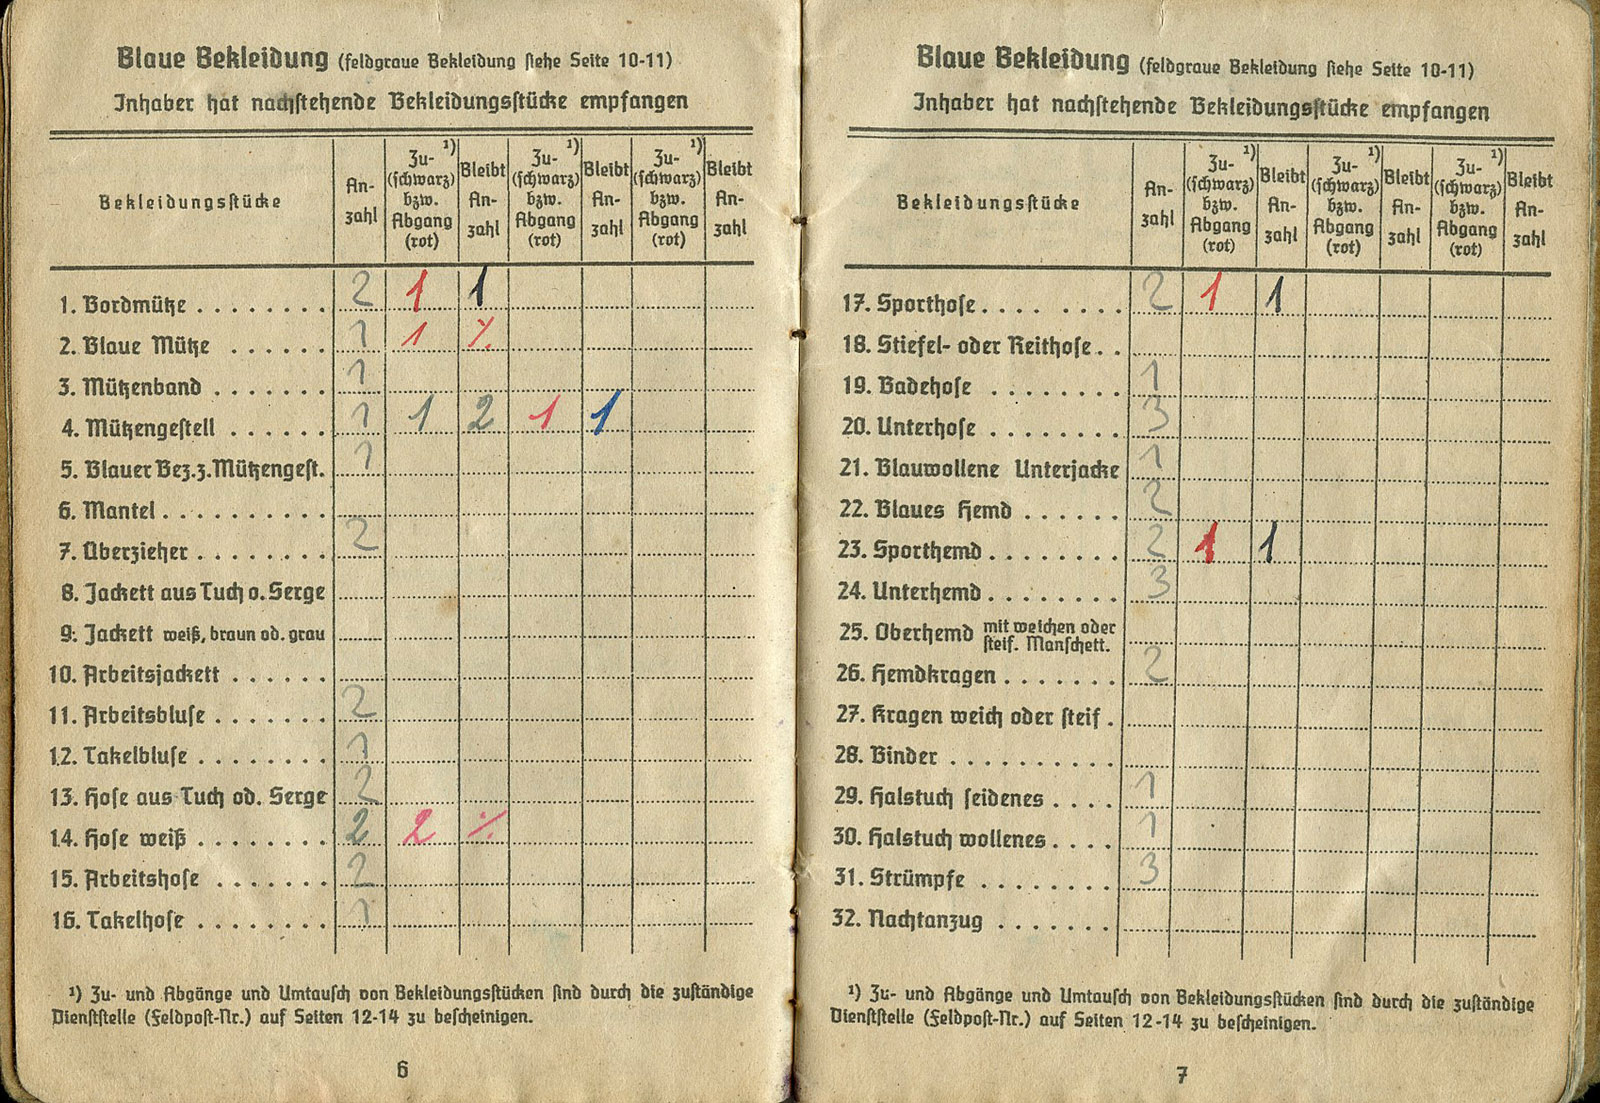 Blaue Bekleidung (feldgraue Bekleidung siehe Seite 10-11)
Inhaber hat nachstehende Bekleidungsstücke empfangen
Bekleidungsstücke | An-zahl | Zu- ¹) (schwarz) bzw. Abgang (rot) | Bleibt An-zahl | Zu- ¹) (schwarz) bzw. Abgang (rot) | Bleibt An-zahl | Zu- ¹) (schwarz) bzw. Abgang (rot) | Bleibt An-zahl
1. Bordmütze . . . . . . . . 2 1 1
2. Blaue Mütze . . . . . . 1 1 ٪
3. Mützenband . . . . . . . 1
4. Mützengestell . . . . . . 1 1 2 1 1
5. Blauer Bez.z.Mützengest. 1
6. Mantel . . . . . . . . . .
7. Überzieher . . . . . . . 2
8. Jackett aus Tuch o. Serge
9. Jackett weiß, braun od. grau
10. Arbeitsjackett . . . . . .
11. Arbeitsbluse . . . . . . . 2
12. Takelbluse . . . . . . . . 1
13. Hose aus Tuch od. Serge 2
14. Hose weiß . . . . . . . . 2 2 ٪
15. Arbeitshose . . . . . . . 2
16. Takelhose . . . . . . . . 1
¹) Zu- und Abgänge und Umtausch von Bekleidungsstücken sind durch die zuständige
Dienststelle (Feldpost-Nr.) auf Seiten 12-14 zu bescheinigen.
6
Blaue Bekleidung (feldgraue Bekleidung siehe Seite 10-11)
Inhaber hat nachstehende Bekleidungsstücke empfangen
Bekleidungsstücke | An-zahl | Zu- ¹) (schwarz) bzw. Abgang (rot) | Bleibt An-zahl | Zu- ¹) (schwarz) bzw. Abgang (rot) | Bleibt An-zahl | Zu- ¹) (schwarz) bzw. Abgang (rot) | Bleibt An-zahl
17. Sporthose . . . . . . . . 2 1 1
18. Stiefel- oder Reithose . .
19. Badehose . . . . . . . . 1
20. Unterhose . . . . . . . . 3
21. Blauwollene Unterjacke 1
22. Blaues Hemd . . . . . . 2
23. Sporthemd . . . . . . . . 2 1 1
24. Unterhemd . . . . . . . . 3
25. Oberhemd mit weichen oder steif. Manschett.
26. Hemdkragen . . . . . . . 2
27. Kragen weich oder steif .
28. Binder . . . . . . . . . .
29. Halstuch seidenes . . . . 1
30. Halstuch wollenes . . . . 1
31. Strümpfe . . . . . . . . 3
32. Nachtanzug . . . . . . .
¹) Zu- und Abgänge und Umtausch von Bekleidungsstücken sind durch die zuständige
Dienststelle (Feldpost-Nr.) auf Seiten 12-14 zu bescheinigen.
7